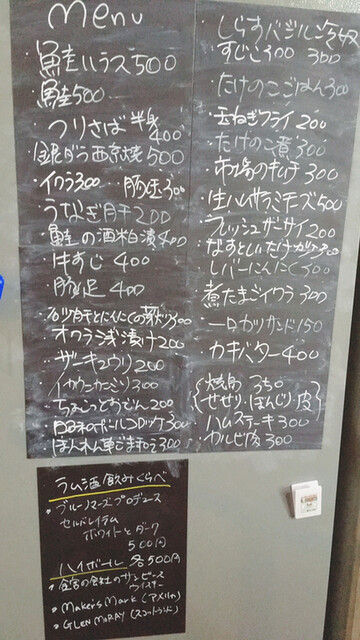 Menu
・鮭ハラス500
・鮭500
・つりさば半身400
・銀ダラ西京焼500
・イクラ300 豚足300
・うなぎ肝干200
・鮭の酒粕漬400
・牛すじ 400
・豚足 400
・オクラ浅漬け200
・ザーキュウリ200
・ちょこっとおでん200
・ほんれん草ごま和え300
・しらすバジル冷奴
すじこ300 300
・たけのこごはん300
・玉ねぎフライ200
・たけのこ煮300
・市場のキムチ300
・生ハムサラミチーズ500
・フレッシュザーサイ200
・なすとしいたけガーリック300
・レバーにんにく300
・煮たまごイクラ300
・一口カツサンド150
・カキバター400
焼鳥 350
せせり・ぼんじり・皮
・ハムステーキ300
・カルビ皮300
ラム酒飲みくらべ
・ブルーノマーズプロデュース
セルバレイラム
ホワイトとダーク
500円
ハイボール 各500円
・Makers Mark (アメリカ)
・GLEN MORAY (スコットランド)